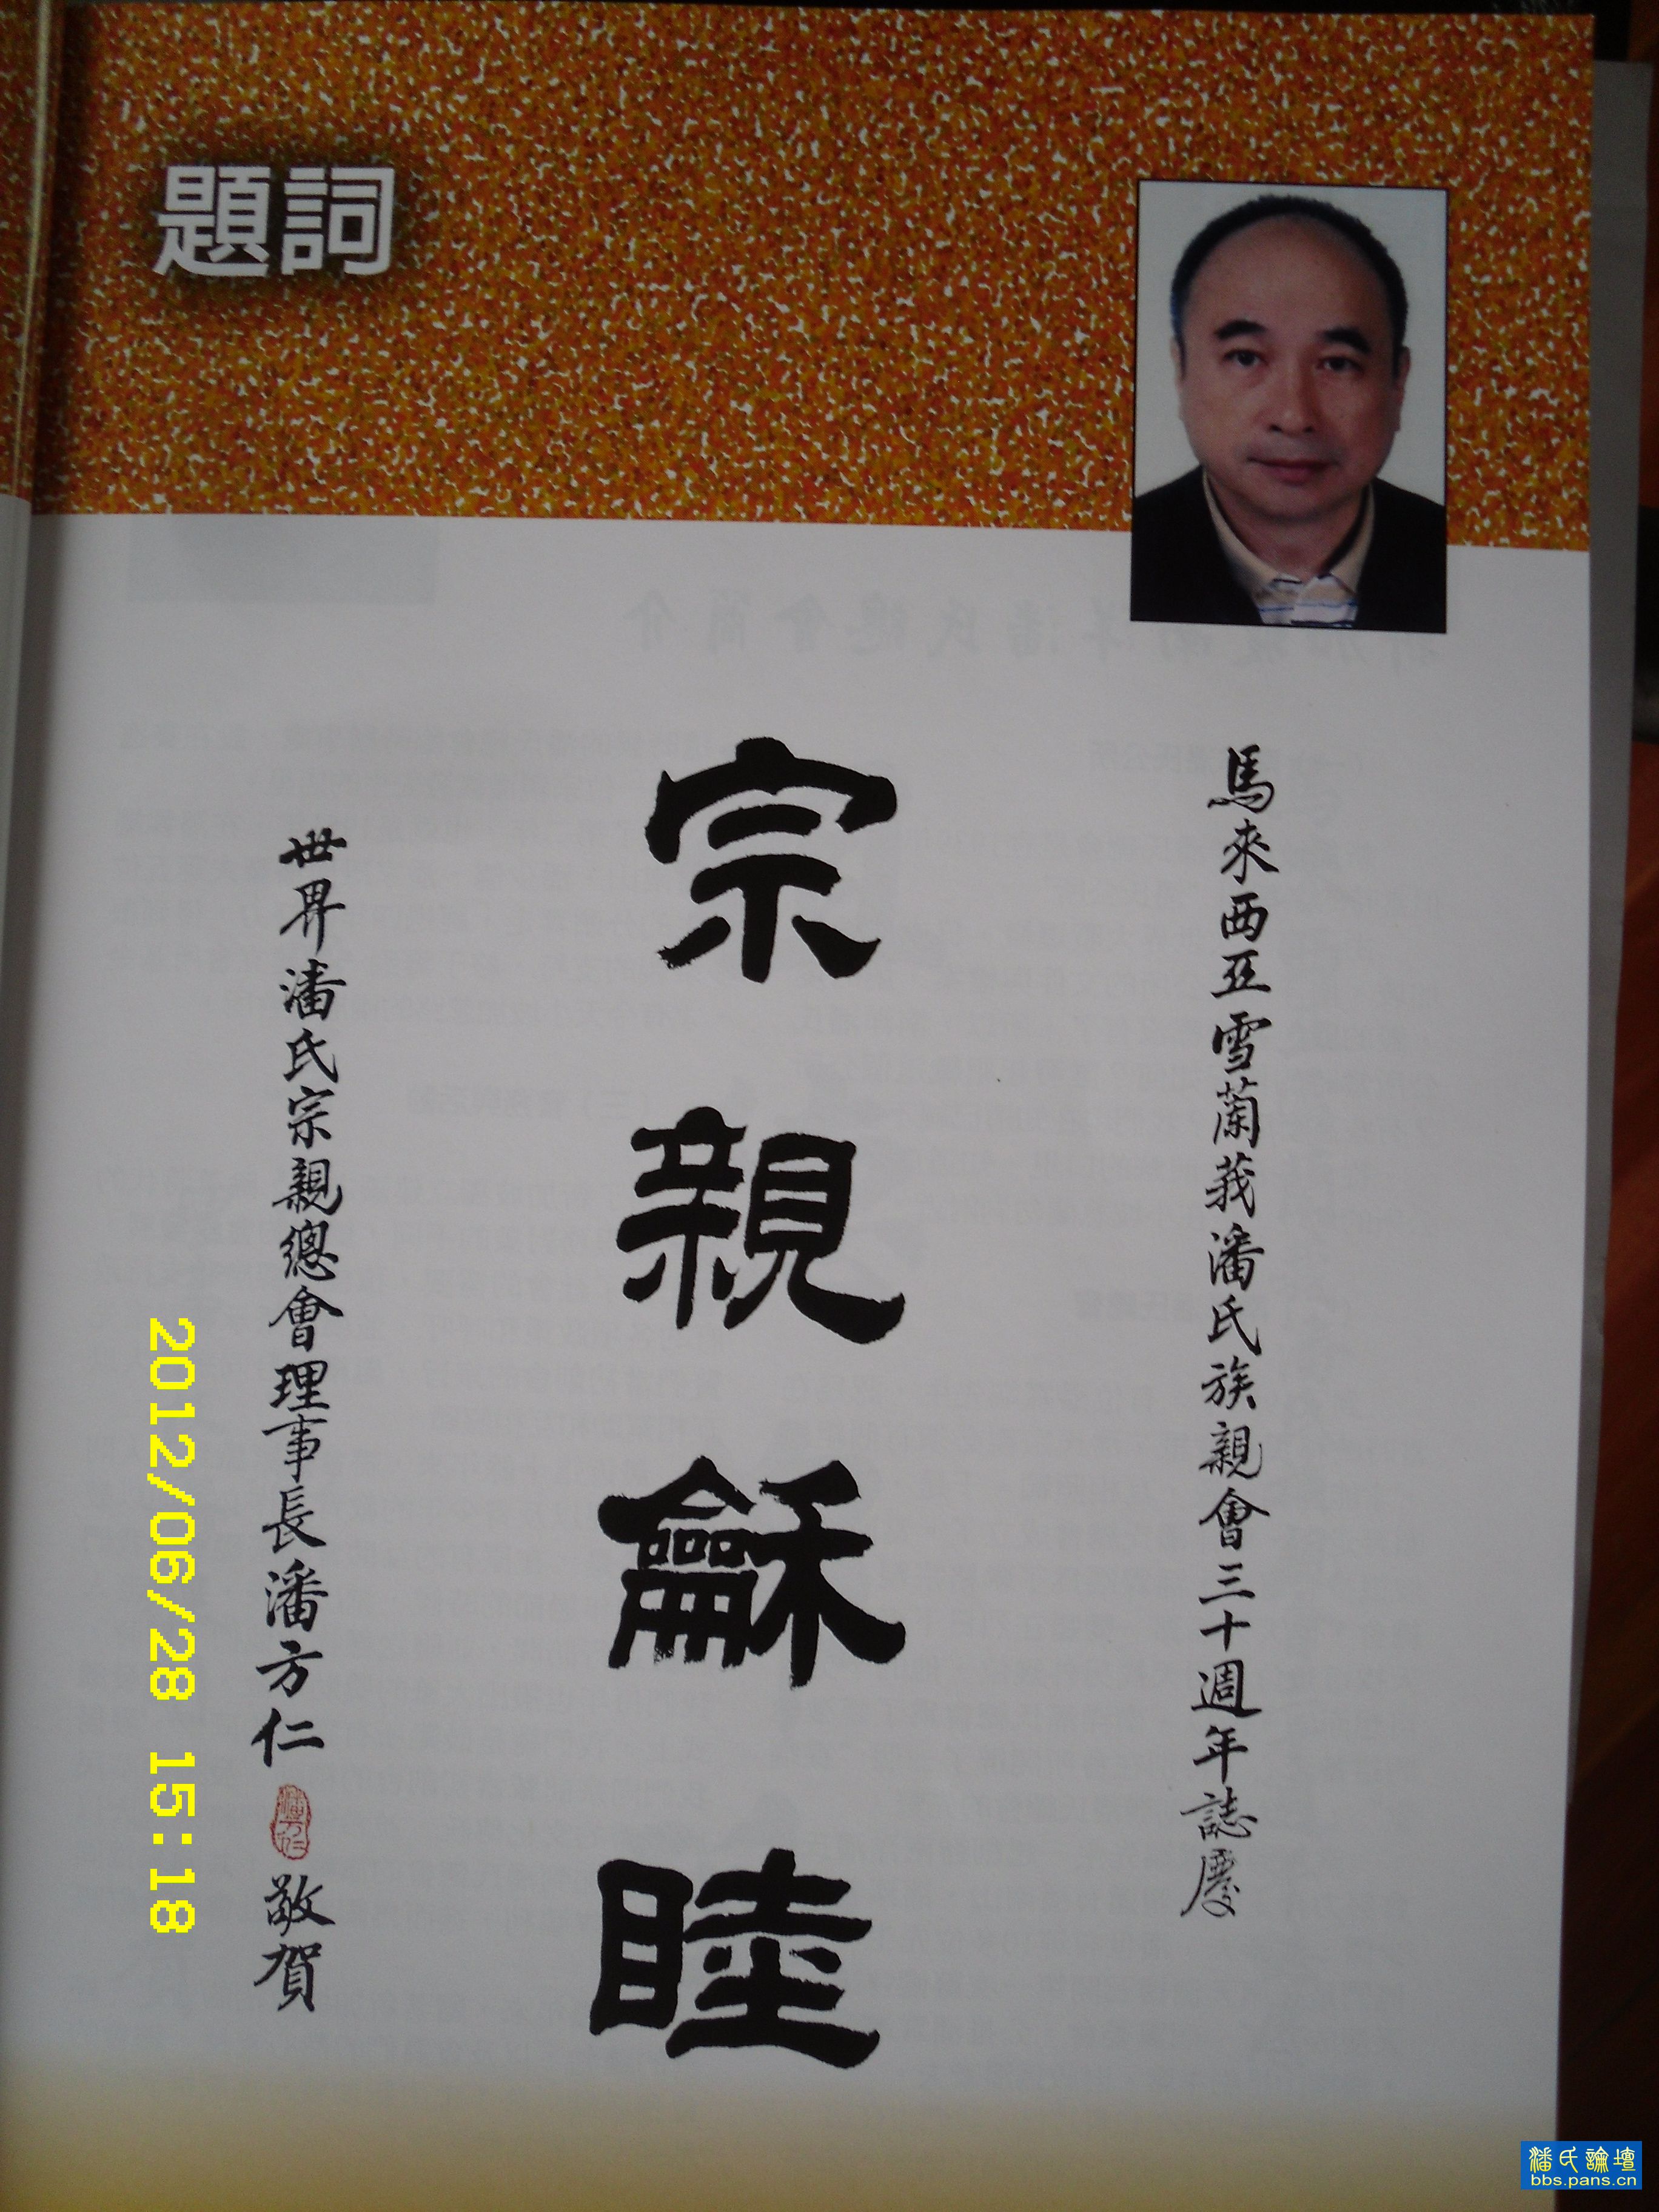 題詞
馬來西亞雪蘭莪潘氏族親會三十週年誌慶
宗親龢睦
世界潘氏宗親總會理事長潘方仁
潘方仁
敬賀
2012/06/28 15:18
潘氏論壇
bbs.pans.cn